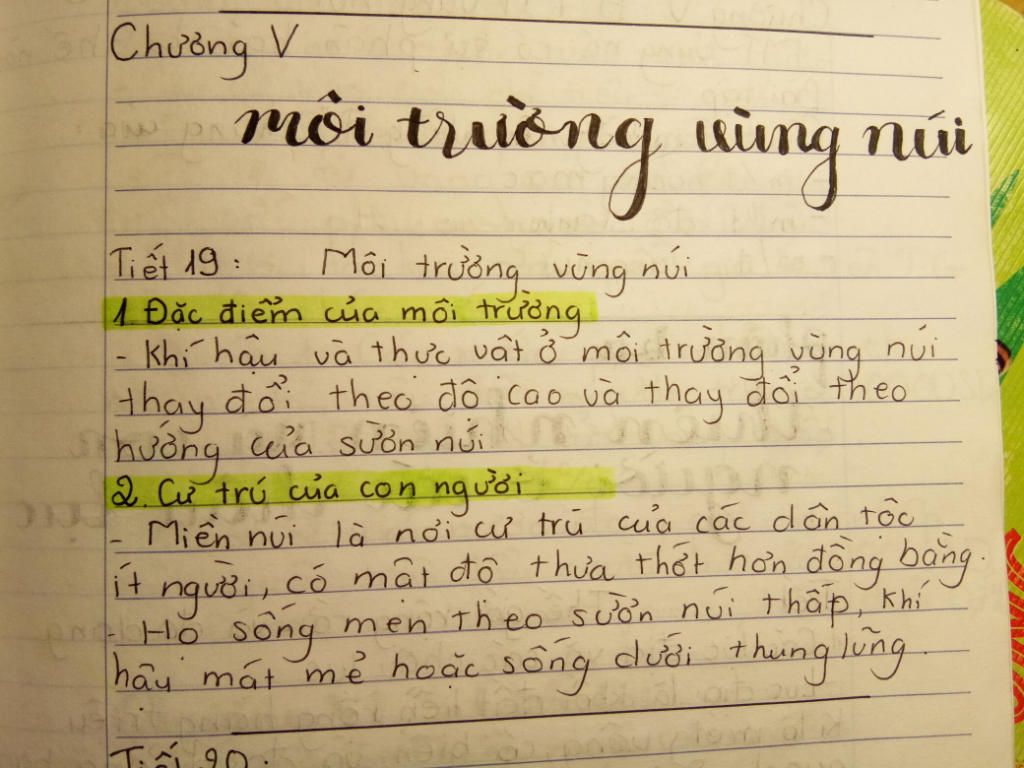 Chương V
môi trường vùng núi
Tiết 19: Môi trường vùng núi
1. Đặc điểm của môi trường
- Khí hậu và thực vật ở môi trường vùng núi
thay đổi theo độ cao và thay đổi theo
hướng của sườn núi
2. Cư trú của con người
- Miền núi là nơi cư trú của các dân tộc
ít người, có mật độ thưa thớt hơn đồng bằng.
- Họ sống men theo sườn núi thấp, khí
hậu mát mẻ hoặc sống dưới thung lũng.
Tiết 20: